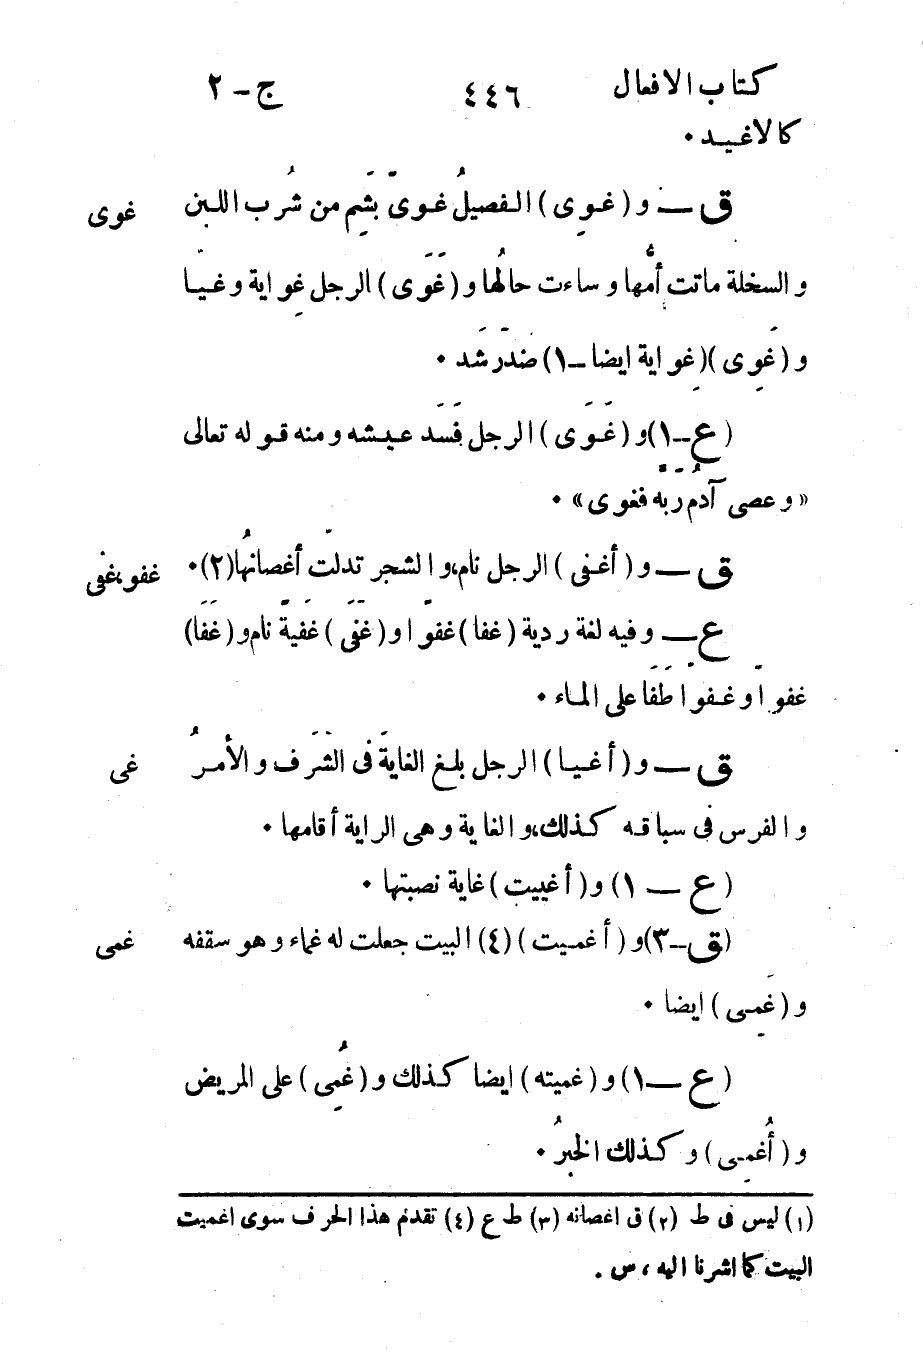 كتاب الافعال ٤٤٦ ج - ٢
كالاغيد ٠
ق — و (غوِى) الفصيلُ غوىً بَشِم من شُرب اللبن غوى
والسخلة ماتت أُمُّها وساءت حالُها و (غَوَى) الرجل غواية وغيّا
و (غوِىَ) (غِواية ايضا - ١) ضدّ رشَد ٠
(ع - ١) و (غَوَى) الرجل فسَد عيشه ومنه قوله تعالى
«وعصى آدمُ ربَّه فغوى» ٠
ق — و (أغفى) الرجل نام، والشجر تدلّت أغصانهُا (٢) ٠ غفو، غفى
ع — وفيه لغة ردية (غفا) غفوًا و (غَفَى) غَفيةً نام و (غَفَا)
غفوًا وغفوّا طَفَا على الماء ٠
ق — و (أغيا) الرجل بلغ الغايَة فى الشرَف والأمرُ غى
والفرس فى سباقه كذلك، والغاية وهى الراية أقامها ٠
(ع — ١) و (أغييت) غاية نصبتها ٠
(ق - ٣) و (أغميت) (٤) البيت جعلت له غماء وهو سقفه غمى
و (غَمِى) ايضا ٠
(ع — ١) و (غميته) ايضا كذلك و (غُمِى) على المريض
و (أُغمِى) وكذلك الخبرُ ٠
(١) ليس فى ط (٢) ق اغصانه (٣) ط ع (٤) تقدم هذا الحرف سوى اغميت
البيت كما اشرنا اليه ، س .